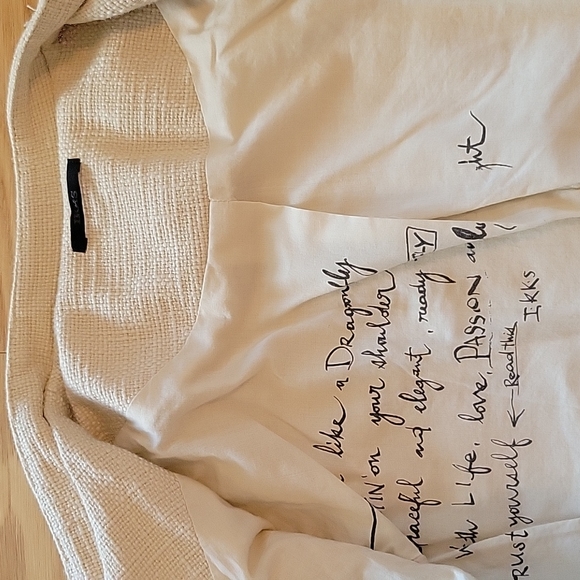 IKKS
like a Dragonfly
TIN'on your shoulder
graceful and elegant, ready
with Life, love, PASSION and
ght
Trust yourself ← Read this
IKKS